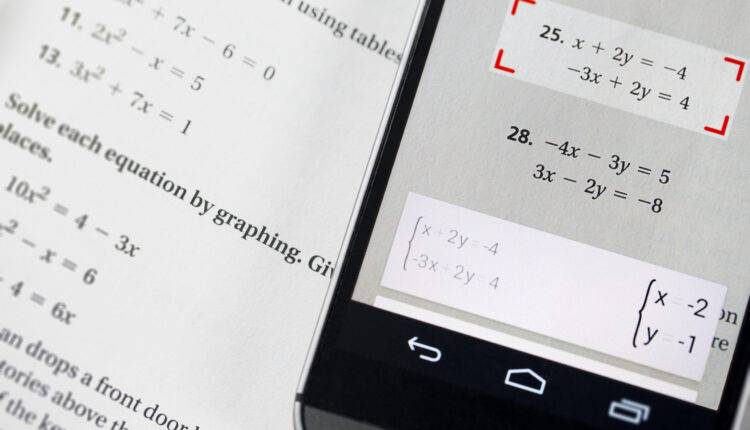 using tables
+ 7x − 6 = 0
11. 2x² − x = 5
13. 3x² + 7x = 1
Solve each equation by graphing.
places.
10x² = 4 − 3x
− x = 6
4 = 6x
an drops a front door
tories above
f the
25. x + 2y = −4
−3x + 2y = 4
28. −4x − 3y = 5
3x − 2y = −8
x + 2y = -4
-3x + 2y = 4
x = -2
y = -1
on
re